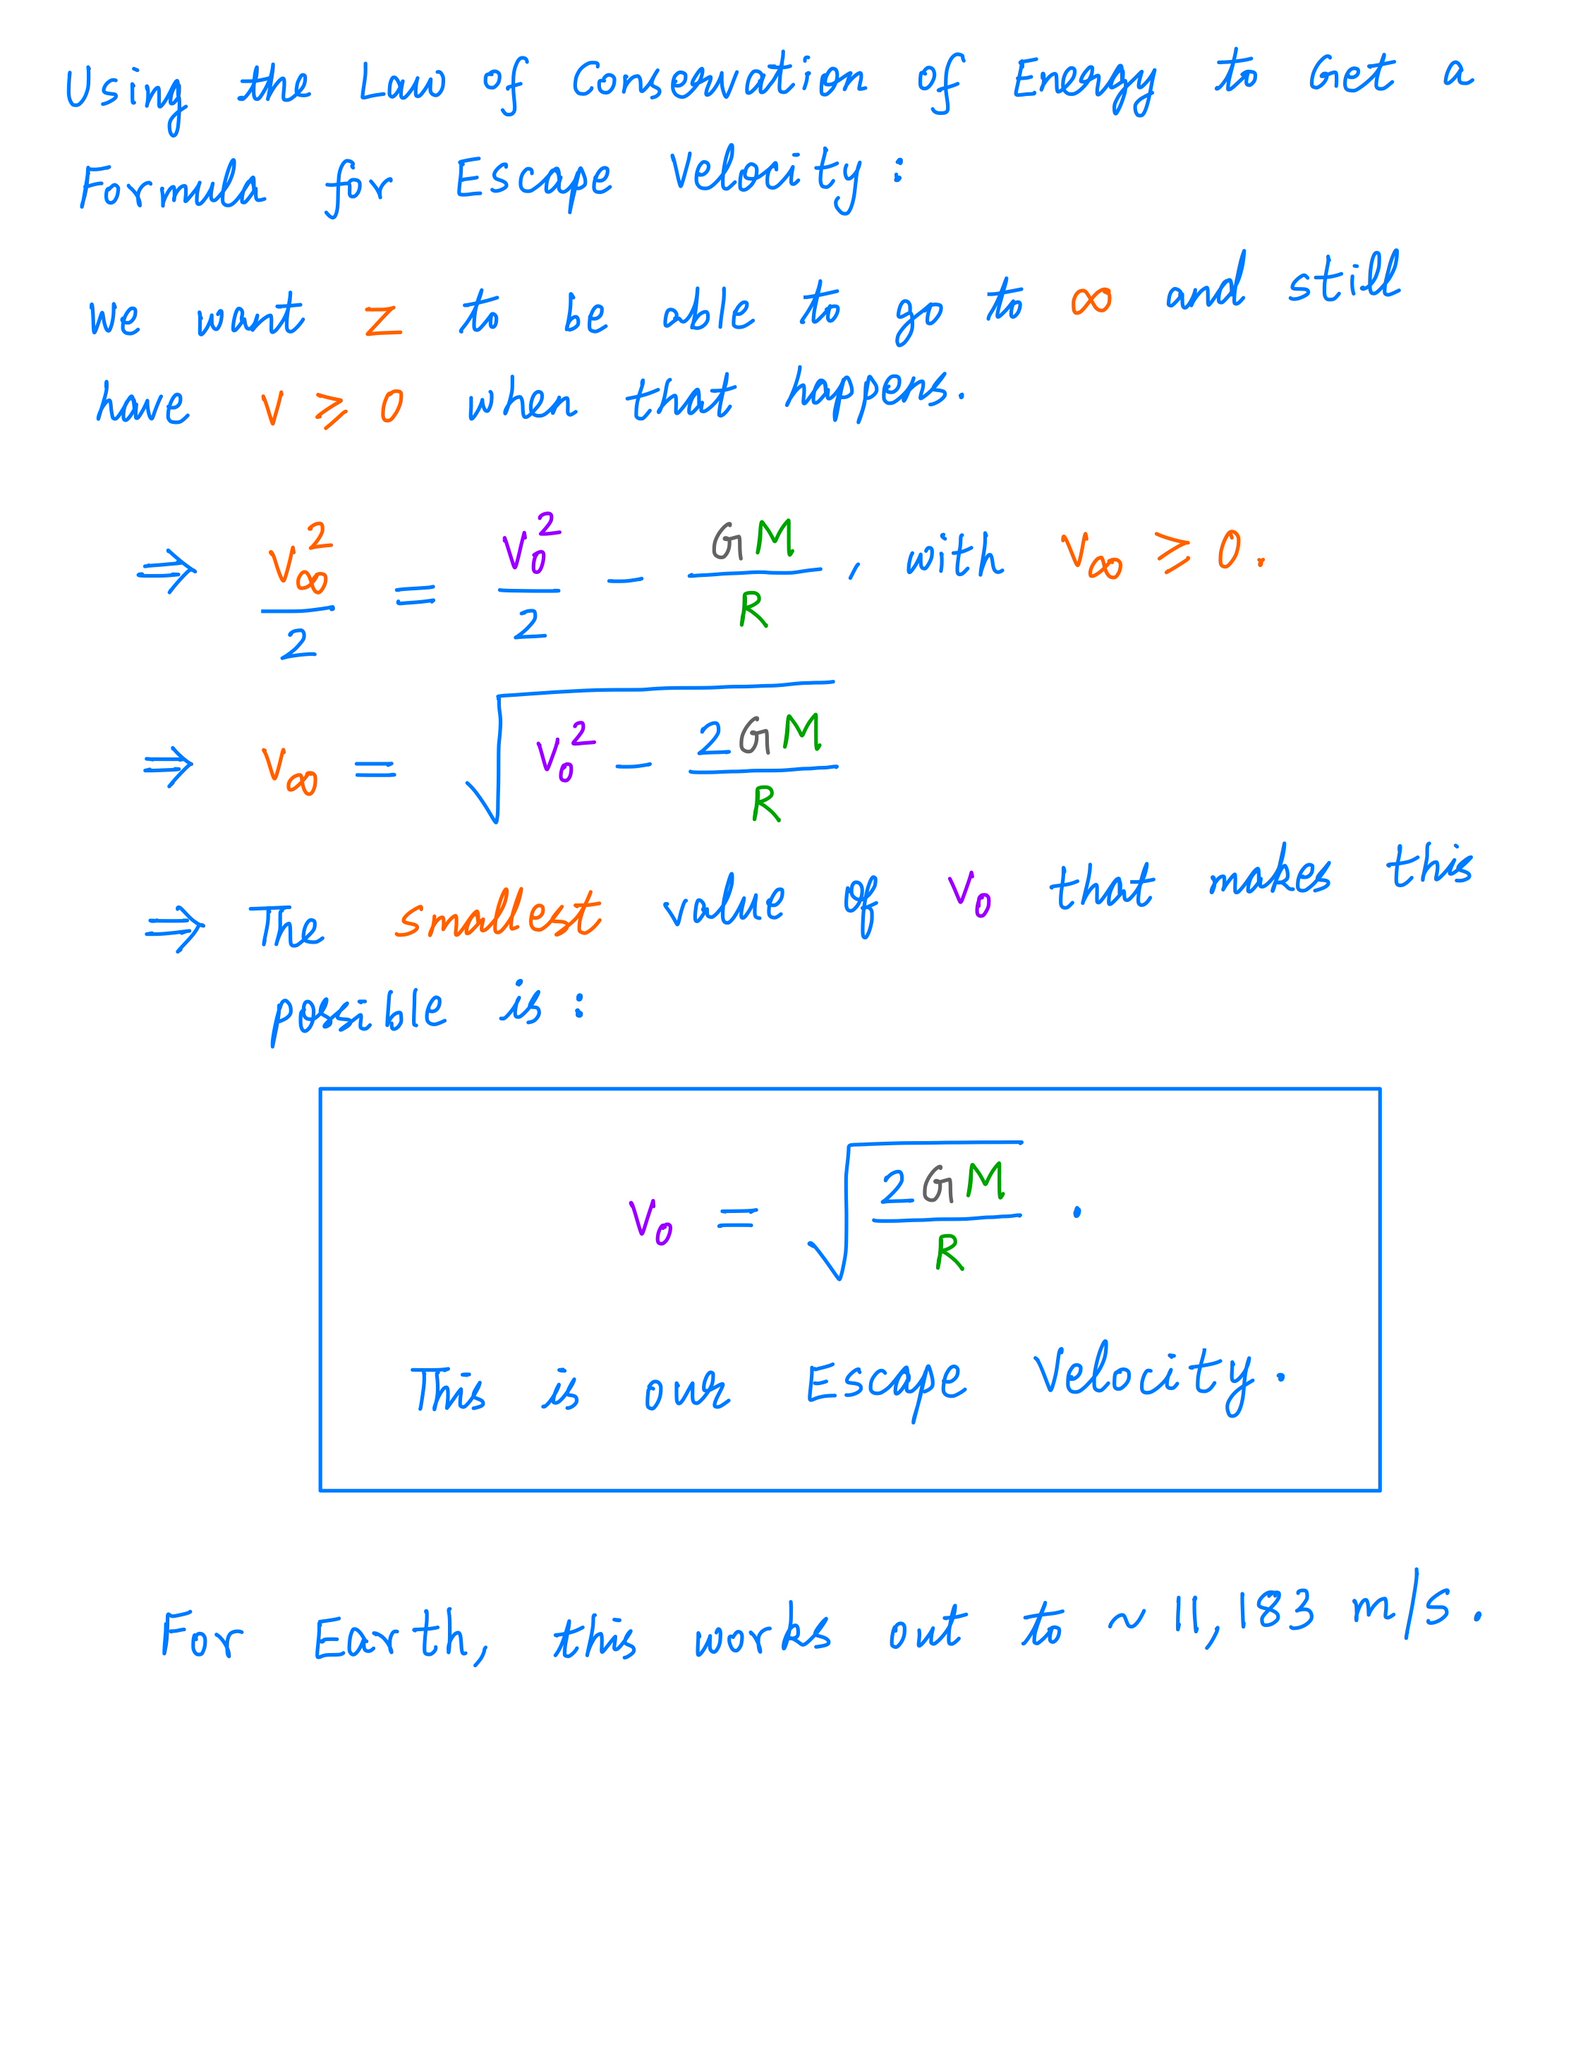 Using the Law of Conservation of Energy to Get a
Formula for Escape Velocity:
We want z to be able to go to ∞ and still
have v ≥ 0 when that happens.
⇒ v∞²/2 = v₀²/2 − GM/R, with v∞ ≥ 0.
⇒ v∞ = √(v₀² − 2GM/R)
⇒ The smallest value of v₀ that makes this
possible is:
v₀ = √(2GM/R).
This is our Escape Velocity.
For Earth, this works out to ~ 11,183 m/s.